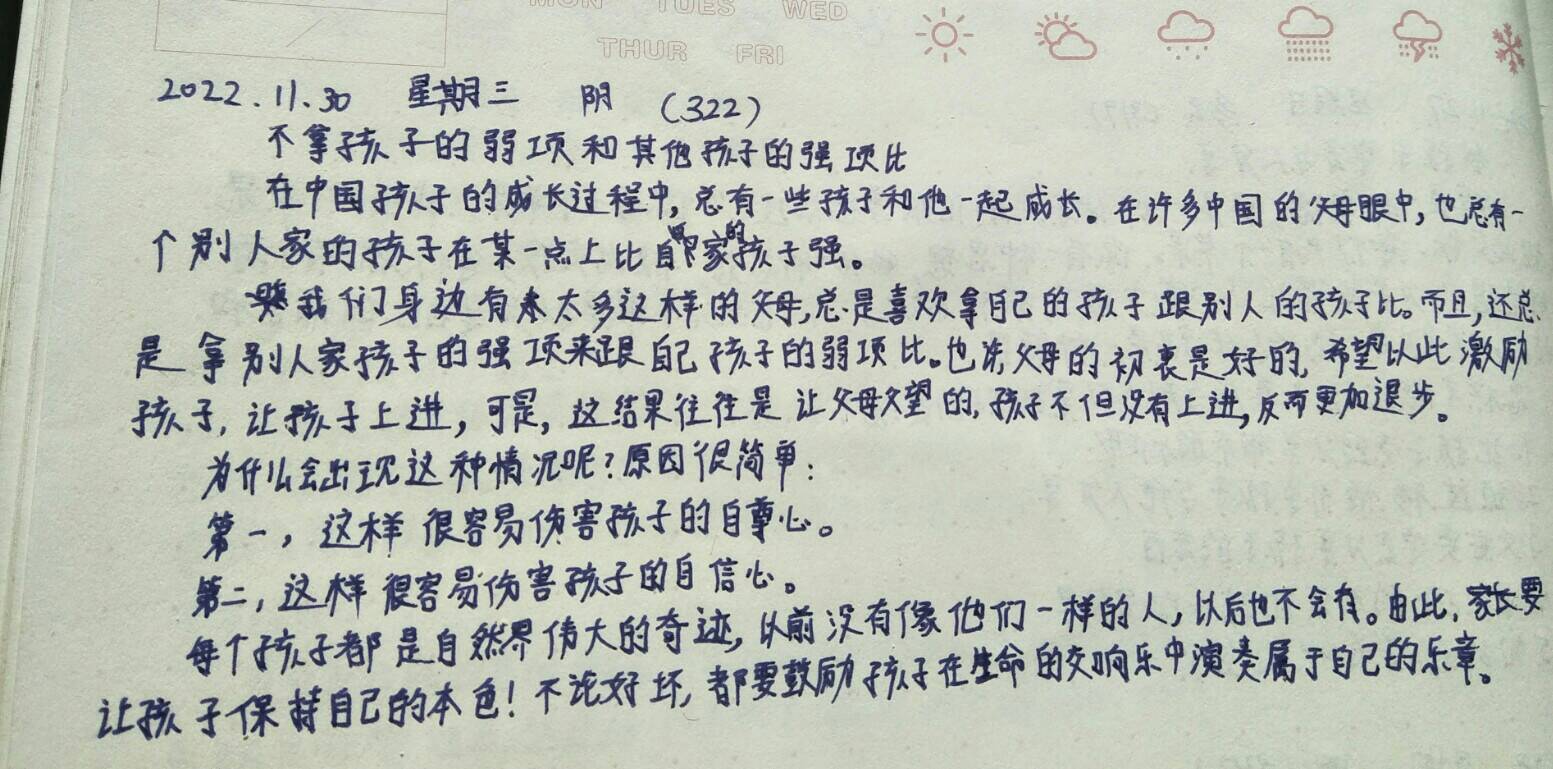 MON TUES WED
THUR FRI
2022.11.30 星期三 阴 (322)
不拿孩子的弱项和其他孩子的强项比
在中国孩子的成长过程中,总有一些孩子和他一起成长。在许多中国的父母眼中,也总有一
个别人家的孩子在某一点上比自家的孩子强。
我们身边有太多这样的父母,总是喜欢拿自己的孩子跟别人的孩子比。而且,还总
是拿别人家孩子的强项来跟自己孩子的弱项比。也许父母的初衷是好的,希望以此激励
孩子,让孩子上进,可是,这结果往往是让父母失望的,孩子不但没有上进,反而更加退步。
为什么会出现这种情况呢?原因很简单:
第一,这样很容易伤害孩子的自尊心。
第二,这样很容易伤害孩子的自信心。
每个孩子都是自然界伟大的奇迹,以前没有像他们一样的人,以后也不会有。由此,家长要
让孩子保持自己的本色!不论好坏,都要鼓励孩子在生命的交响乐中演奏属于自己的乐章。